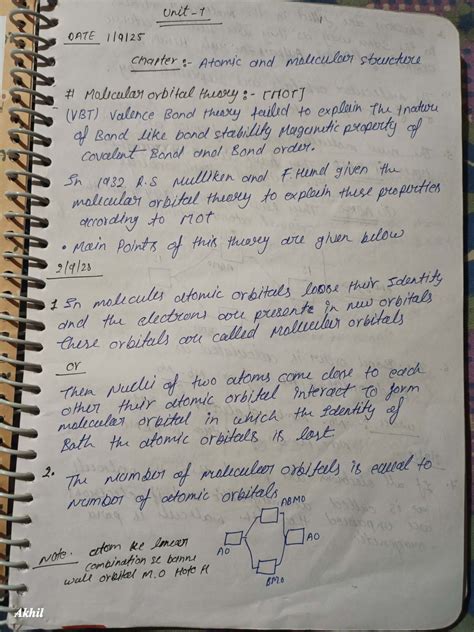 Unit-1
DATE 1/9/25
Chapter:- Atomic and molecular structure
# Molecular orbital theory:- [MOT]
(VBT) Valence Bond theory failed to explain the nature
of Bond like bond stability Magenetic property of
covalent Bond and Bond order.
In 1932 R.S Mulliken and F. Hund given the
molecular orbital theory to explain these properties
according to MOT
• Main Points of this theory are given below
2/9/25
1 In molecules atomic orbitals loose their Identity
and the electrons are presente in new orbitals
these orbitals are called Molecular orbitals
or
Then Nuclei of two atoms come close to each
other their atomic orbital interact to form
molecular orbital in which the identity of
Both the atomic orbitals is lost
2. The number of molecular orbitals is equal to
number of atomic orbitals
ABMO
AO
AO
BMO
Note: atom ke linear
combination se banne
wale orbital M.O Hota H
Akhil